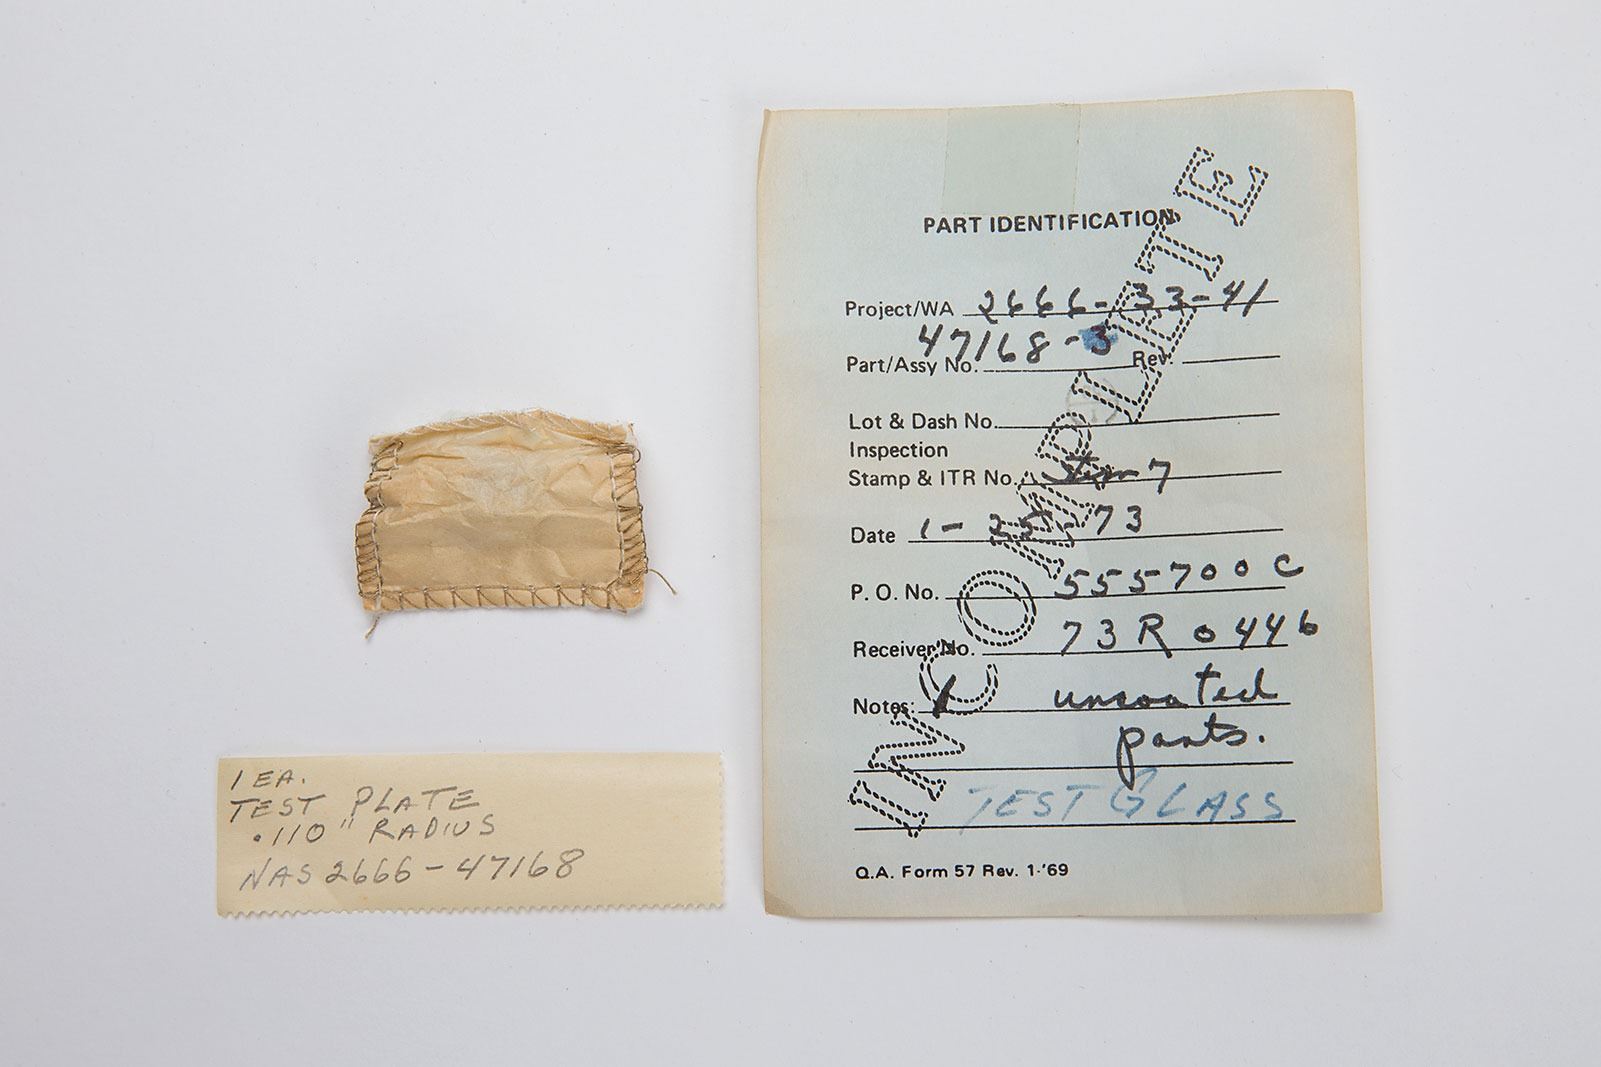 1 EA.
TEST PLATE
.110" RADIUS
NAS 2666-47168
PART IDENTIFICATION
Project/WA 2666-33-41
Part/Assy No. 47168-3 Rev.
Lot & Dash No.
Inspection
Stamp & ITR No. 7
Date 1-25-73
P. O. No. 555700C
Receiver No. 73R0446
Notes: 1 uncoated
parts.
TEST GLASS
INCOMPLETE
Q.A. Form 57 Rev. 1-'69